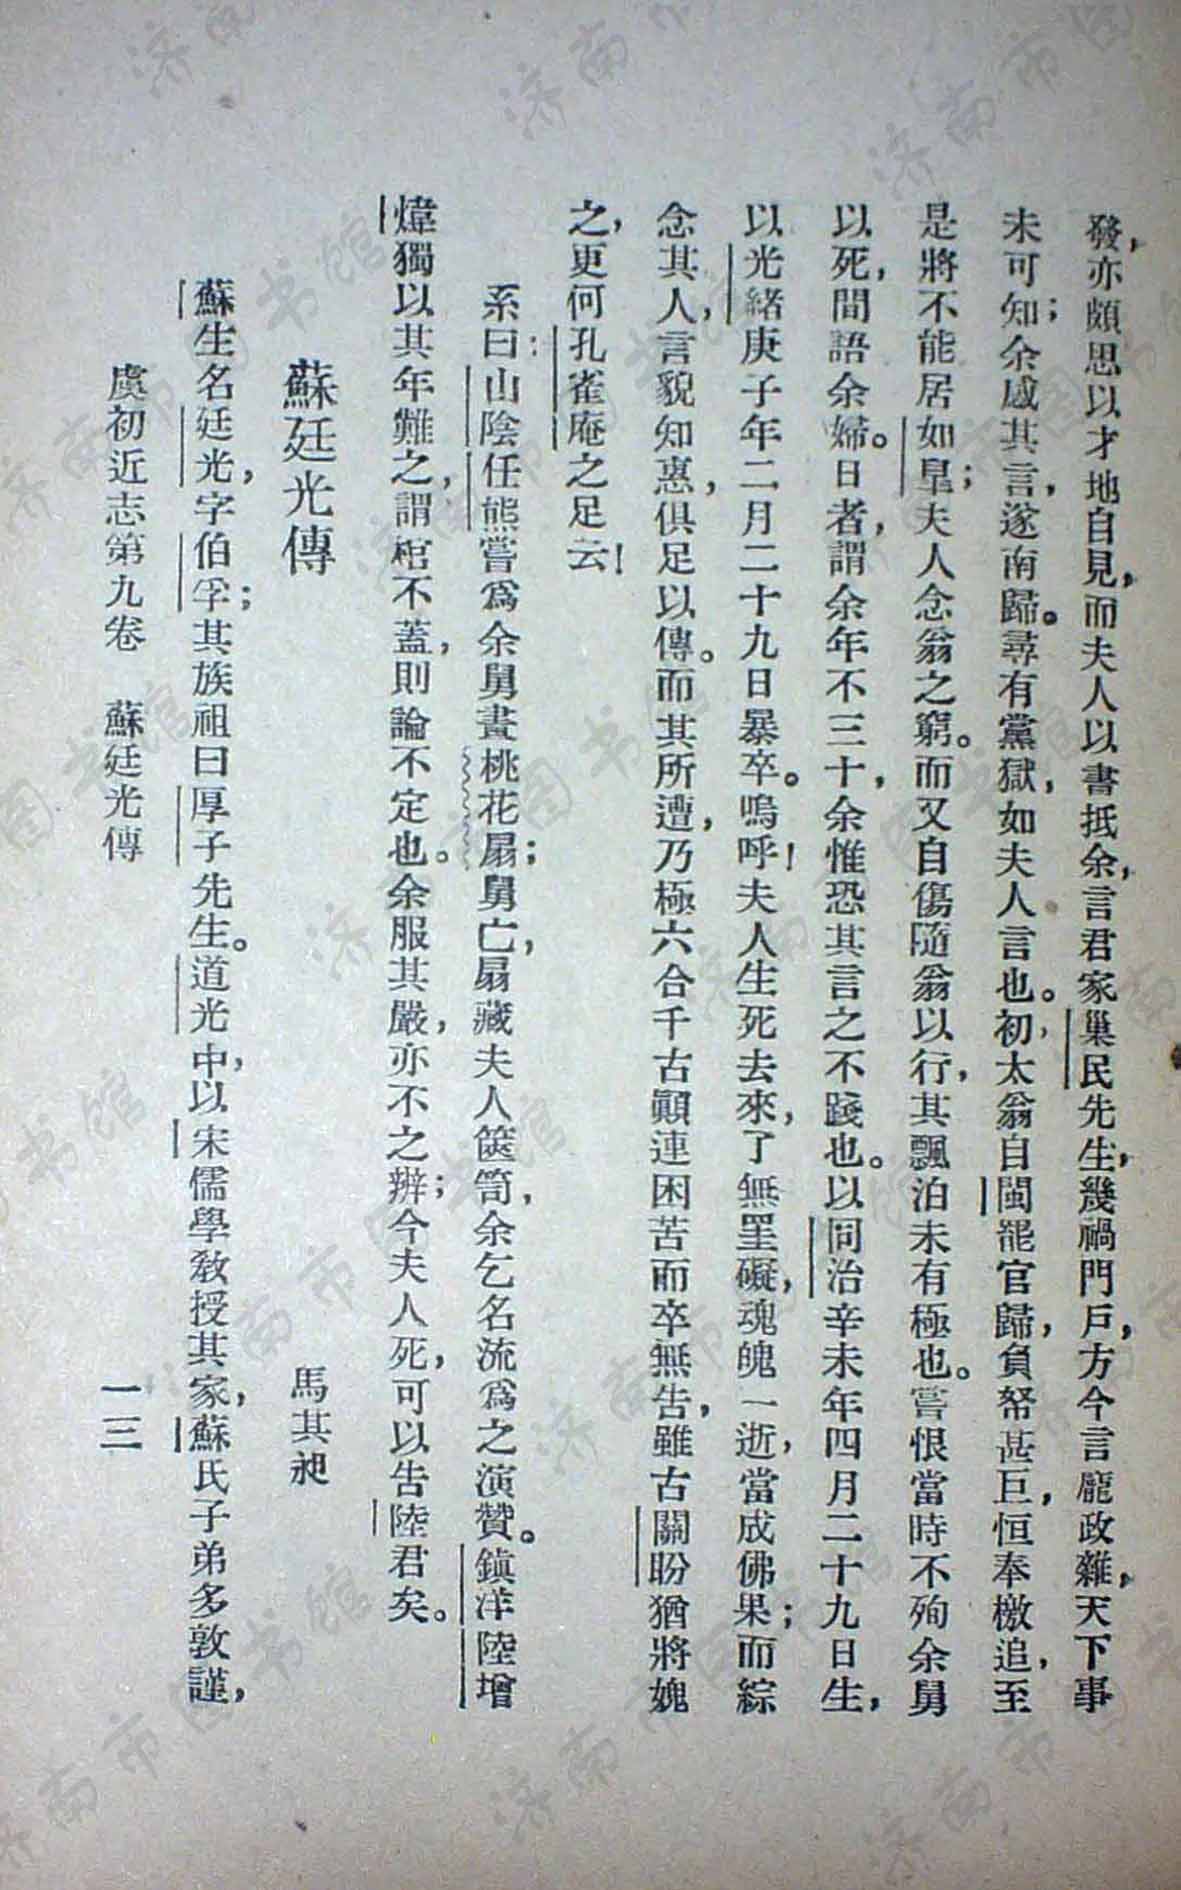 發，亦頗思以才地自見，而夫人以書抵余，言君家巢民先生，幾禍門戶，方今言龐政雜，天下事
未可知；余感其言，遂南歸。尋有黨獄，如夫人言也。初，太翁自閩罷官歸，負帑甚巨，恒奉檄追，至
是將不能居如皐；夫人念翁之窮。而又自傷隨翁以行，其飄泊未有極也。嘗恨當時不殉余舅
以死，間語余婦。日者，謂余年不三十，余惟恐其言之不踐也。以同治辛未年四月二十九日生，
以光緒庚子年二月二十九日暴卒。嗚呼！夫人生死去來，了無罣礙，魂魄一逝，當成佛果；而綜
念其人，言貌知惠，俱足以傳。而其所遭，乃極六合千古顚連困苦而卒無告，雖古關盼猶將媿
之，更何孔雀庵之足云！
系曰：山陰任熊嘗爲余舅畫桃花扇；舅亡，扇藏夫人篋笥，余乞名流爲之演贊。鎭洋陸增
煒獨以其年難之，謂棺不蓋，則論不定也。余服其嚴，亦不之辦；今夫人死，可以告陸君矣。
蘇廷光傳
馬其昶
蘇生名廷光，字伯孚；其族祖曰厚子先生。道光中，以宋儒學敎授其家，蘇氏子弟多敦謹，
虞初近志第九卷　蘇廷光傳
一三
济南市图书馆